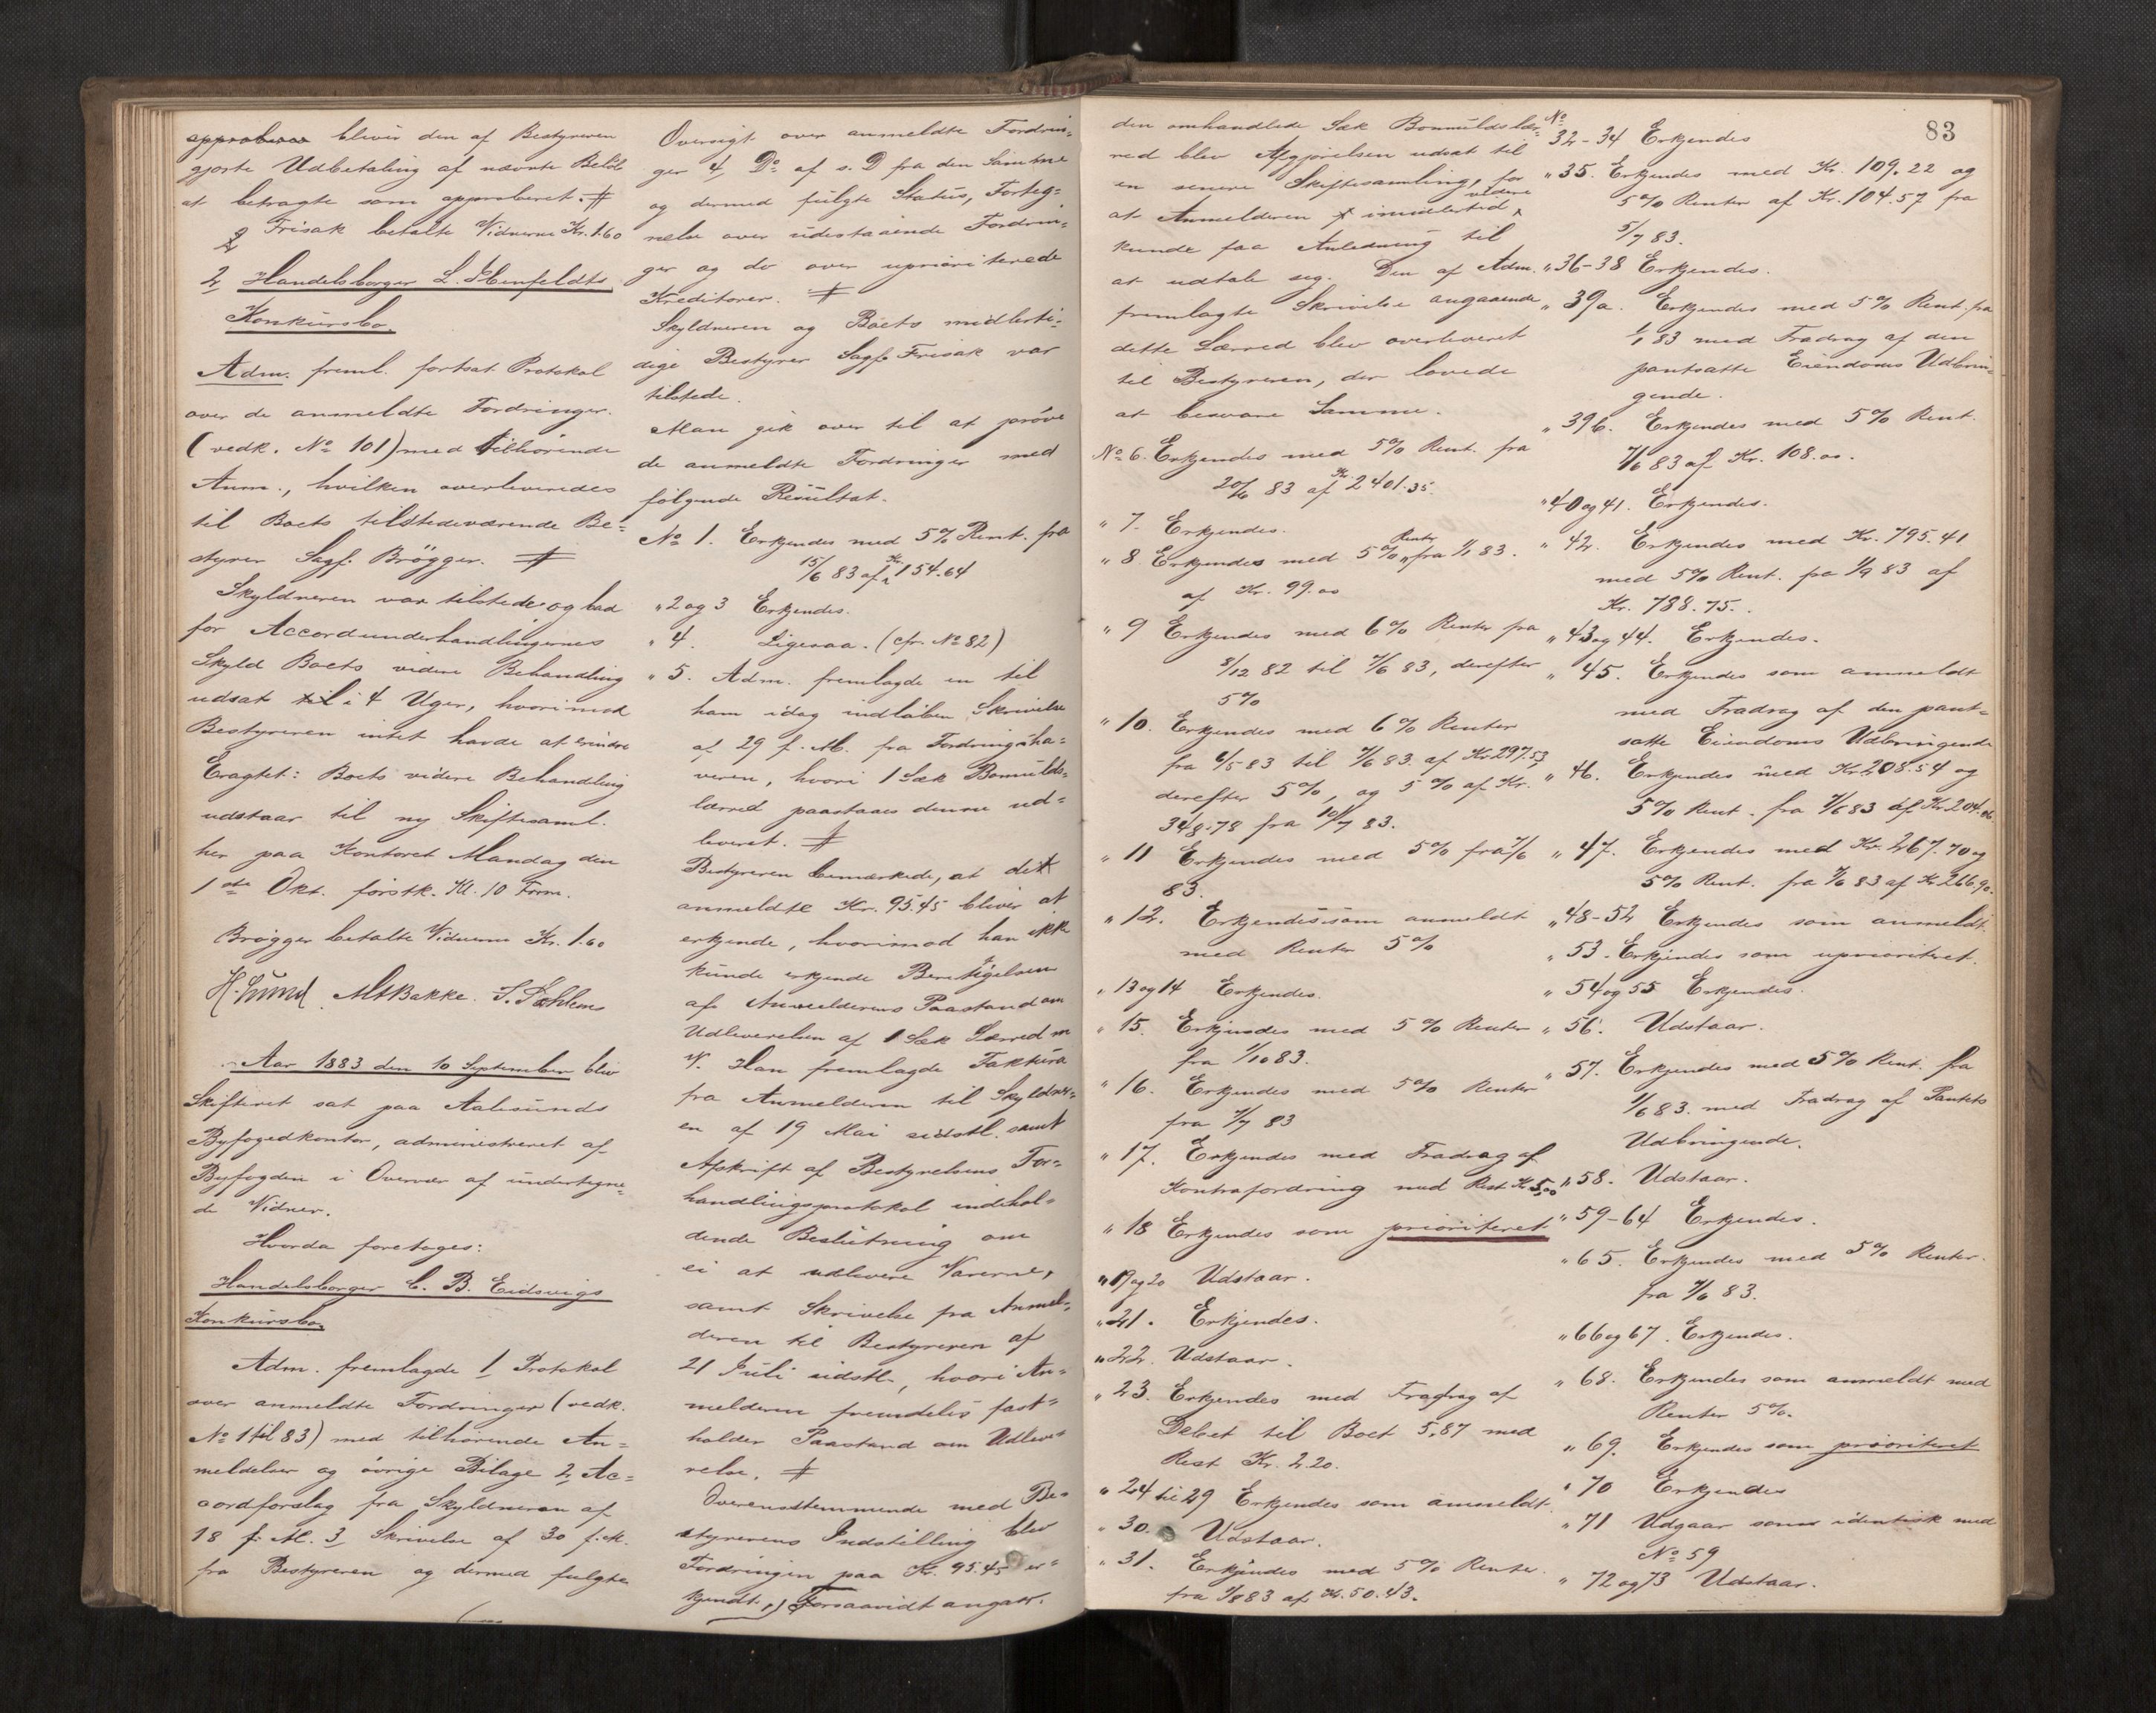 bliver den af Bestyreren
gjorte Udbetaling af nævnte Beløb
at betragte som approberet. #
Frisak betalte Vidnerne Kr. 1.60
2, Handelsborger L. Stenfeldts
Konkursbo.
Adm. freml. fortsat Protokol
over de anmeldte Fordringer.
(vedk. No 101) med tilhørende
Anm., hvilken overleveredes
til Boets tilstedeværende Be=
styrer Sagf. Brøgger. #
Skyldneren var tilstede og bad
for Accordunderhandlingernes
Skyld Boets videre Behandling
udsat i 4 Uger, hvorimod
Bestyreren intet havde at erindre
Eragtet: Boets videre Behandling
udstaar til ny Skiftesaml.
her paa Kontoret Mandag den
1ste Okt. førstk. Kl. 10 Form.
Brøgger betalte Vidnerne Kr. 1.60
H. Lund. Bakke.
Aar 1883 den 10 September blev
Skifteret sat paa Aalesunds
Byfogedkontor, administreret af
Byfogden i Overvær af undertegne=
de Vidner.
Hvorda foretoges:
Handelsborger C. B. Eidsvigs
Konkursbo.
Adm. fremlagde 1, Protokol
over anmeldte Fordringer (vedk.
No 1 til 83) med tilhørende An=
meldelser og øvrige Bilage 2, Ac=
cordforslag fra Skyldneren af
18 f. M. 3, Skrivelse af 30 f. M.
fra Bestyreren og dermed fulgte
Oversigt over anmeldte Fordrin=
ger 4, Do af s. D fra den Samme
og dermed fulgte Status, Forteg=
nelse over udestaaende Fordrin=
ger og do over upriori terede
Kreditorer. #
Skyldneren og Boets midlerti=
dige Bestyrer Sagf. Frisak var
tilstede.
Man gik over til at prøve
de anmeldte Fordringer med
følgende Resultat.
No 1. Erkjendes med 5% Rent. fra
15/6 83 af Kr. 154.64
" 2 og 3 Erkjendes.
" 4. Ligesaa. (cfr. No 82)
" 5. Adm. fremlagde en til
ham idag indløben Skrivelse
af 29 f. M. fra Fordringsha=
veren, hvori 1 Sæk Bomulds=
lærred paastaaes denne ud=
leveret. #
Bestyreren bemærkede, at det
anmeldte Kr. 95.45 bliver at
erkjende, hvorimod han ikke
kunde erkjende Berettigelsen
af Anmelderens Paastand om
Udleverelsen af 1 Sæk Lærred m
V. Han fremlagde Faktura
fra Anmelderen til Skyldner=
en af 19 Mai sidstl. samt
Afskrift af Bestyrelsens For=
handlingsprotokol indehol=
dende Beslutning om
ei at udlevere Varerne,
samt Skrivelse fra Anmel=
deren til Bestyreren af
21 Juli sidstl., hvori An=
melderen fremdeles fast=
holder Paastand om Udleve=
relse. #
Overensstemmende med Be=
styrerens Indstilling blev
Fordringen paa Kr. 95.45 er=
kjendt, Forsaavidt angaar
den omhandlede Sæk Bomuldslær=
red blev Afgjørelsen udsat til
en senere Skiftesamling, for
at Anmelderen imidlertid videre
kunde faa Anledning til
at udtale sig. Den af Adm.
fremlagte Skrivelse angaaende
dette Lærred blev overleveret
til Bestyreren, der lovede
at besvare Samme.
No 6. Erkjendes med 5% Rent. fra
20/6 83 af Kr. 2401.35.
" 7. Erkjendes.
" 8. Erkjendes med 5% Renter fra 1/1 83.
af Kr. 99.00
" 9 Erkjendes med 6% Renter fra
8/12 82 til 7/6 83, derefter
5%
" 10. Erkjendes med 6% Renter
fra 6/5 83 til 7/6 83. af Kr 297.53
derefter 5%, og 5% af Kr.
348.78 fra 10/7 83.
" 11 Erkjendes med 5% fra 7/6
83.
" 12. Erkjendes som anmeldt
med Renter 5%
" 13 og 14 Erkjendes.
" 15. Erkjendes med 5% Renter
fra 1/10 83.
" 16. Erkjendes med 5% Renter
fra 7/7 83
" 17. Erkjendes med Fradrag af
Kontrafordring med Rest Kr 5,00
" 18 Erkjendes som prioriteret
" 19 og 20 Udstaar.
" 21. Erkjendes.
" 22. Udstaar.
" 23. Erkjendes med Fradrag af
Debet til Boet 5,87 med
Rest Kr. 2.20.
" 24 til 29 Erkjendes som anmeldt.
" 30. Udstaar.
" 31. Erkjendes med 5% Renter
fra 1/8 83 af Kr. 50.43.
83
No
32-34 Erkjendes
" 35. Erkjendes med Kr. 109.22 og
5% Renter af Kr. 104.57 fra
5/7 83.
" 36-38 Erkjendes.
" 39a. Erkjendes med 5% Rent. fra
1/1 83 med Fradrag af den
pantsatte Eiendoms Udbrin=
gende.
" 39b. Erkjendes med 5% Rent.
7/6 83 af Kr. 108.00.
" 40 og 41. Erkjendes.
" 42. Erkjendes med Kr. 795.41
med 5% Rent. fra 1/9 83 af
Kr. 788.75.
" 43 og 44. Erkjendes.
" 45. Erkjendes som anmeldt
med Fradrag af den pant=
satte Eiendoms Udbringende
" 46. Erkjendes med Kr 208.54 og
5% Rent. fra 7/6 83 af Kr 204.06.
" 47. Erkjendes med Kr. 267.70 og
5% Rent. fra 7/6 83 af Kr 266,90.
" 48-52 Erkjendes som anmeldt.
" 53. Erkjendes som uprioriteret.
" 54 og 55 Erkjendes.
" 56. Udstaar.
" 57. Erkjendes med 5% Rent. fra
1/6 83. med Fradrag af Pantets
Udbringende.
" 58. Udstaar.
" 59-64 Erkjendes.
" 65. Erkjendes med 5% Renter.
fra 7/6 83.
" 66 og 67. Erkjendes.
" 68. Erkjendes som anmeldt med
Renter 5%.
" 69. Erkjendes som prioriteret
" 70 Erkjendes
" 71 Udgaar som identisk med
No 59
" 72 og 73 Udstaar.